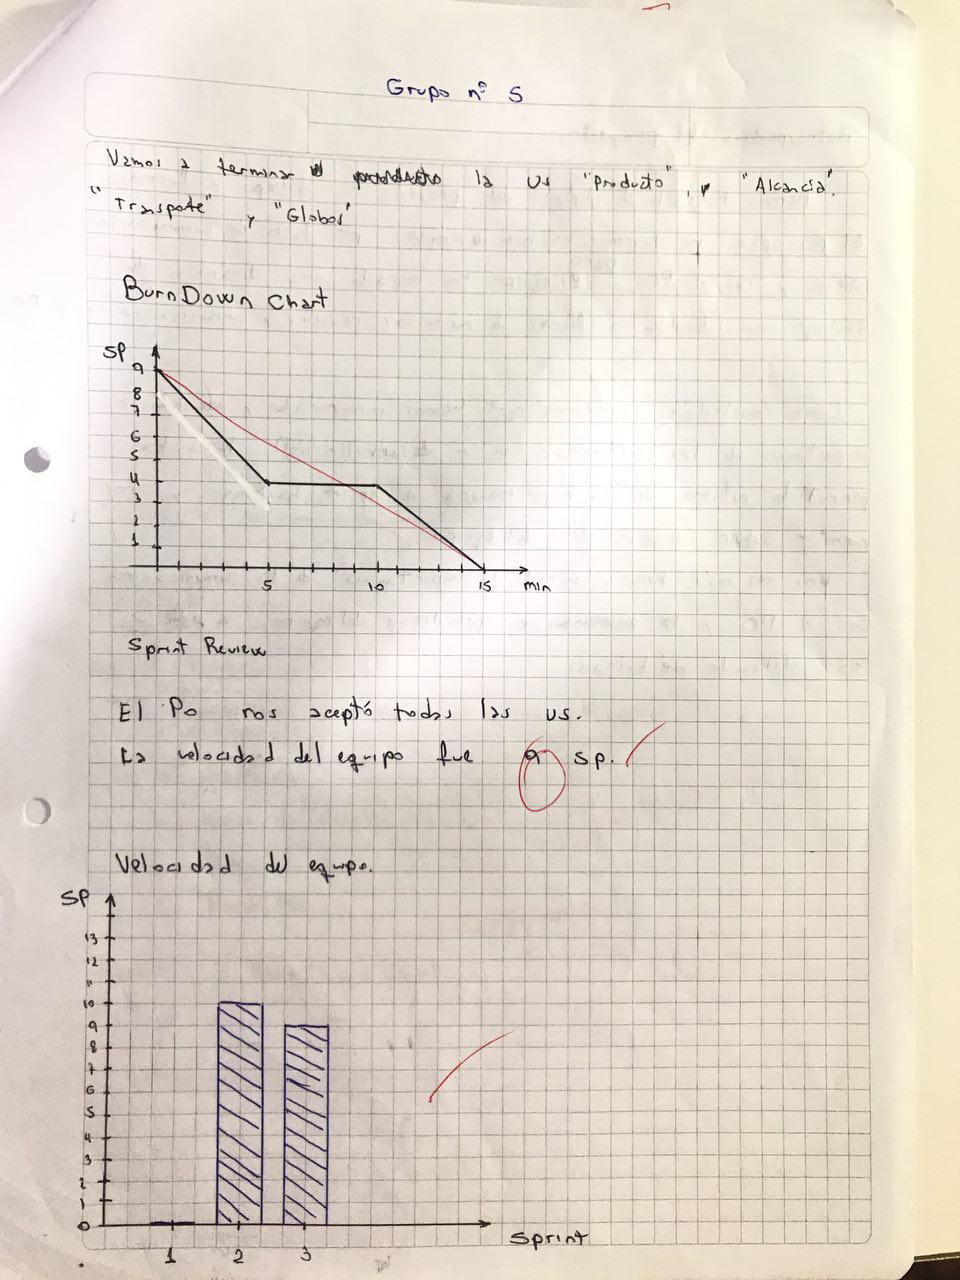 Grupo nº 5
Vamos a terminar el la us "Producto", y "Alcancía".
"Transpote" y "Globos"
BurnDown Chart
SP
9
8
7
6
5
4
3
2
1
5 10 15 min
Sprint Review
El Po nos aceptó todas las us.
La velocidad del equipo fue 9 sp.
Velocidad del equipo.
SP
13
12
11
10
9
8
7
6
5
4
3
2
1
0
1 2 3 Sprint